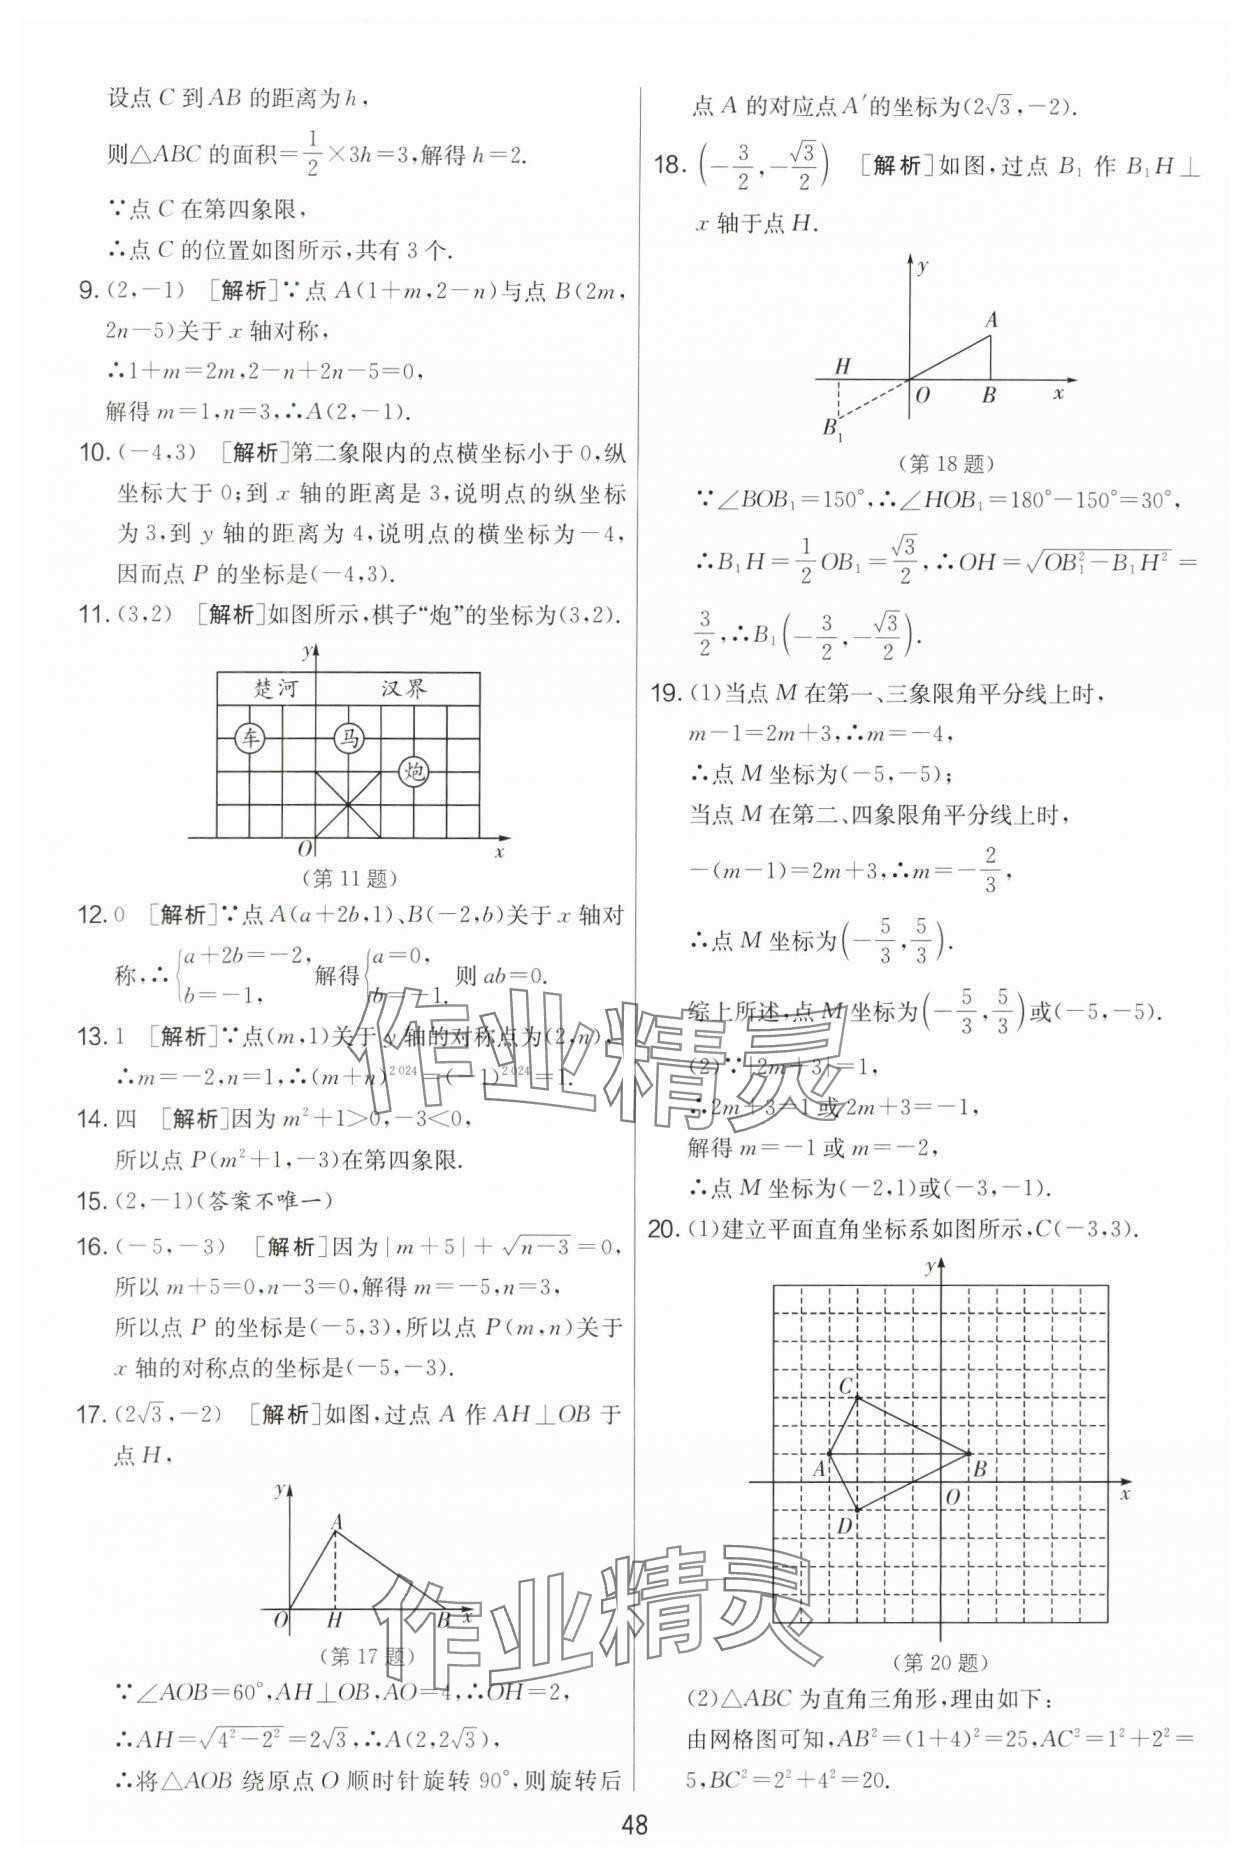 设点 C 到 AB 的距离为 h，
则△ABC 的面积=1/2×3h=3，解得 h=2.
∵点 C 在第四象限，
∴点 C 的位置如图所示，共有 3 个.
9. (2，-1) [解析]∵点 A(1+m，2-n)与点 B(2m，
2n-5)关于 x 轴对称，
∴1+m=2m，2-n+2n-5=0，
解得 m=1，n=3，∴A(2，-1).
10. (-4，3) [解析]第二象限内的点横坐标小于 0，纵
坐标大于 0；到 x 轴的距离是 3，说明点的纵坐标
为 3，到 y 轴的距离为 4，说明点的横坐标为-4，
因而点 P 的坐标是(-4，3).
11. (3，2) [解析]如图所示，棋子“炮”的坐标为(3，2).
y
楚河 汉界
车 马
炮
O x
(第 11 题)
12. 0 [解析]∵点 A(a+2b，1)、B(-2，b)关于 x 轴对
称，∴{a+2b=-2，b=-1， 解得{a=0，b=-1. 则 ab=0.
13. 1 [解析]∵点(m，1)关于 y 轴的对称点为(2，n)，
∴m=-2，n=1，∴(m+n)²⁰²⁴=(-1)²⁰²⁴=1.
14. 四 [解析]因为 m²+1>0，-3<0，
所以点 P(m²+1，-3)在第四象限.
15. (2，-1)(答案不唯一)
16. (-5，-3) [解析]因为|m+5|+√(n-3)=0，
所以 m+5=0，n-3=0，解得 m=-5，n=3，
所以点 P 的坐标是(-5，3)，所以点 P(m，n)关于
x 轴的对称点的坐标是(-5，-3).
17. (2√3，-2) [解析]如图，过点 A 作 AH⊥OB 于
点 H，
y
A
O H B x
(第 17 题)
∵∠AOB=60°，AH⊥OB，AO=4，∴OH=2，
∴AH=√(4²-2²)=2√3，∴A(2，2√3)，
∴将△AOB 绕原点 O 顺时针旋转 90°，则旋转后
点 A 的对应点 A′的坐标为(2√3，-2).
18. (-3/2，-√3/2) [解析]如图，过点 B₁ 作 B₁H⊥
x 轴于点 H.
y
A
H
O B x
B₁
(第 18 题)
∵∠BOB₁=150°，∴∠HOB₁=180°-150°=30°，
∴B₁H=1/2OB₁=√3/2，∴OH=√(OB₁²-B₁H²)=
3/2，∴B₁(-3/2，-√3/2).
19. (1)当点 M 在第一、三象限角平分线上时，
m-1=2m+3，∴m=-4，
∴点 M 坐标为(-5，-5)；
当点 M 在第二、四象限角平分线上时，
-(m-1)=2m+3，∴m=-2/3，
∴点 M 坐标为(-5/3，5/3).
综上所述，点 M 坐标为(-5/3，5/3)或(-5，-5).
(2)∵|2m+3|=1，
∴2m+3=1 或 2m+3=-1，
解得 m=-1 或 m=-2，
∴点 M 坐标为(-2，1)或(-3，-1).
20. (1)建立平面直角坐标系如图所示，C(-3，3).
y
C
A B
O x
D
(第 20 题)
(2)△ABC 为直角三角形，理由如下：
由网格图可知，AB²=(1+4)²=25，AC²=1²+2²=
5，BC²=2²+4²=20.
作业精灵
作业精灵
48